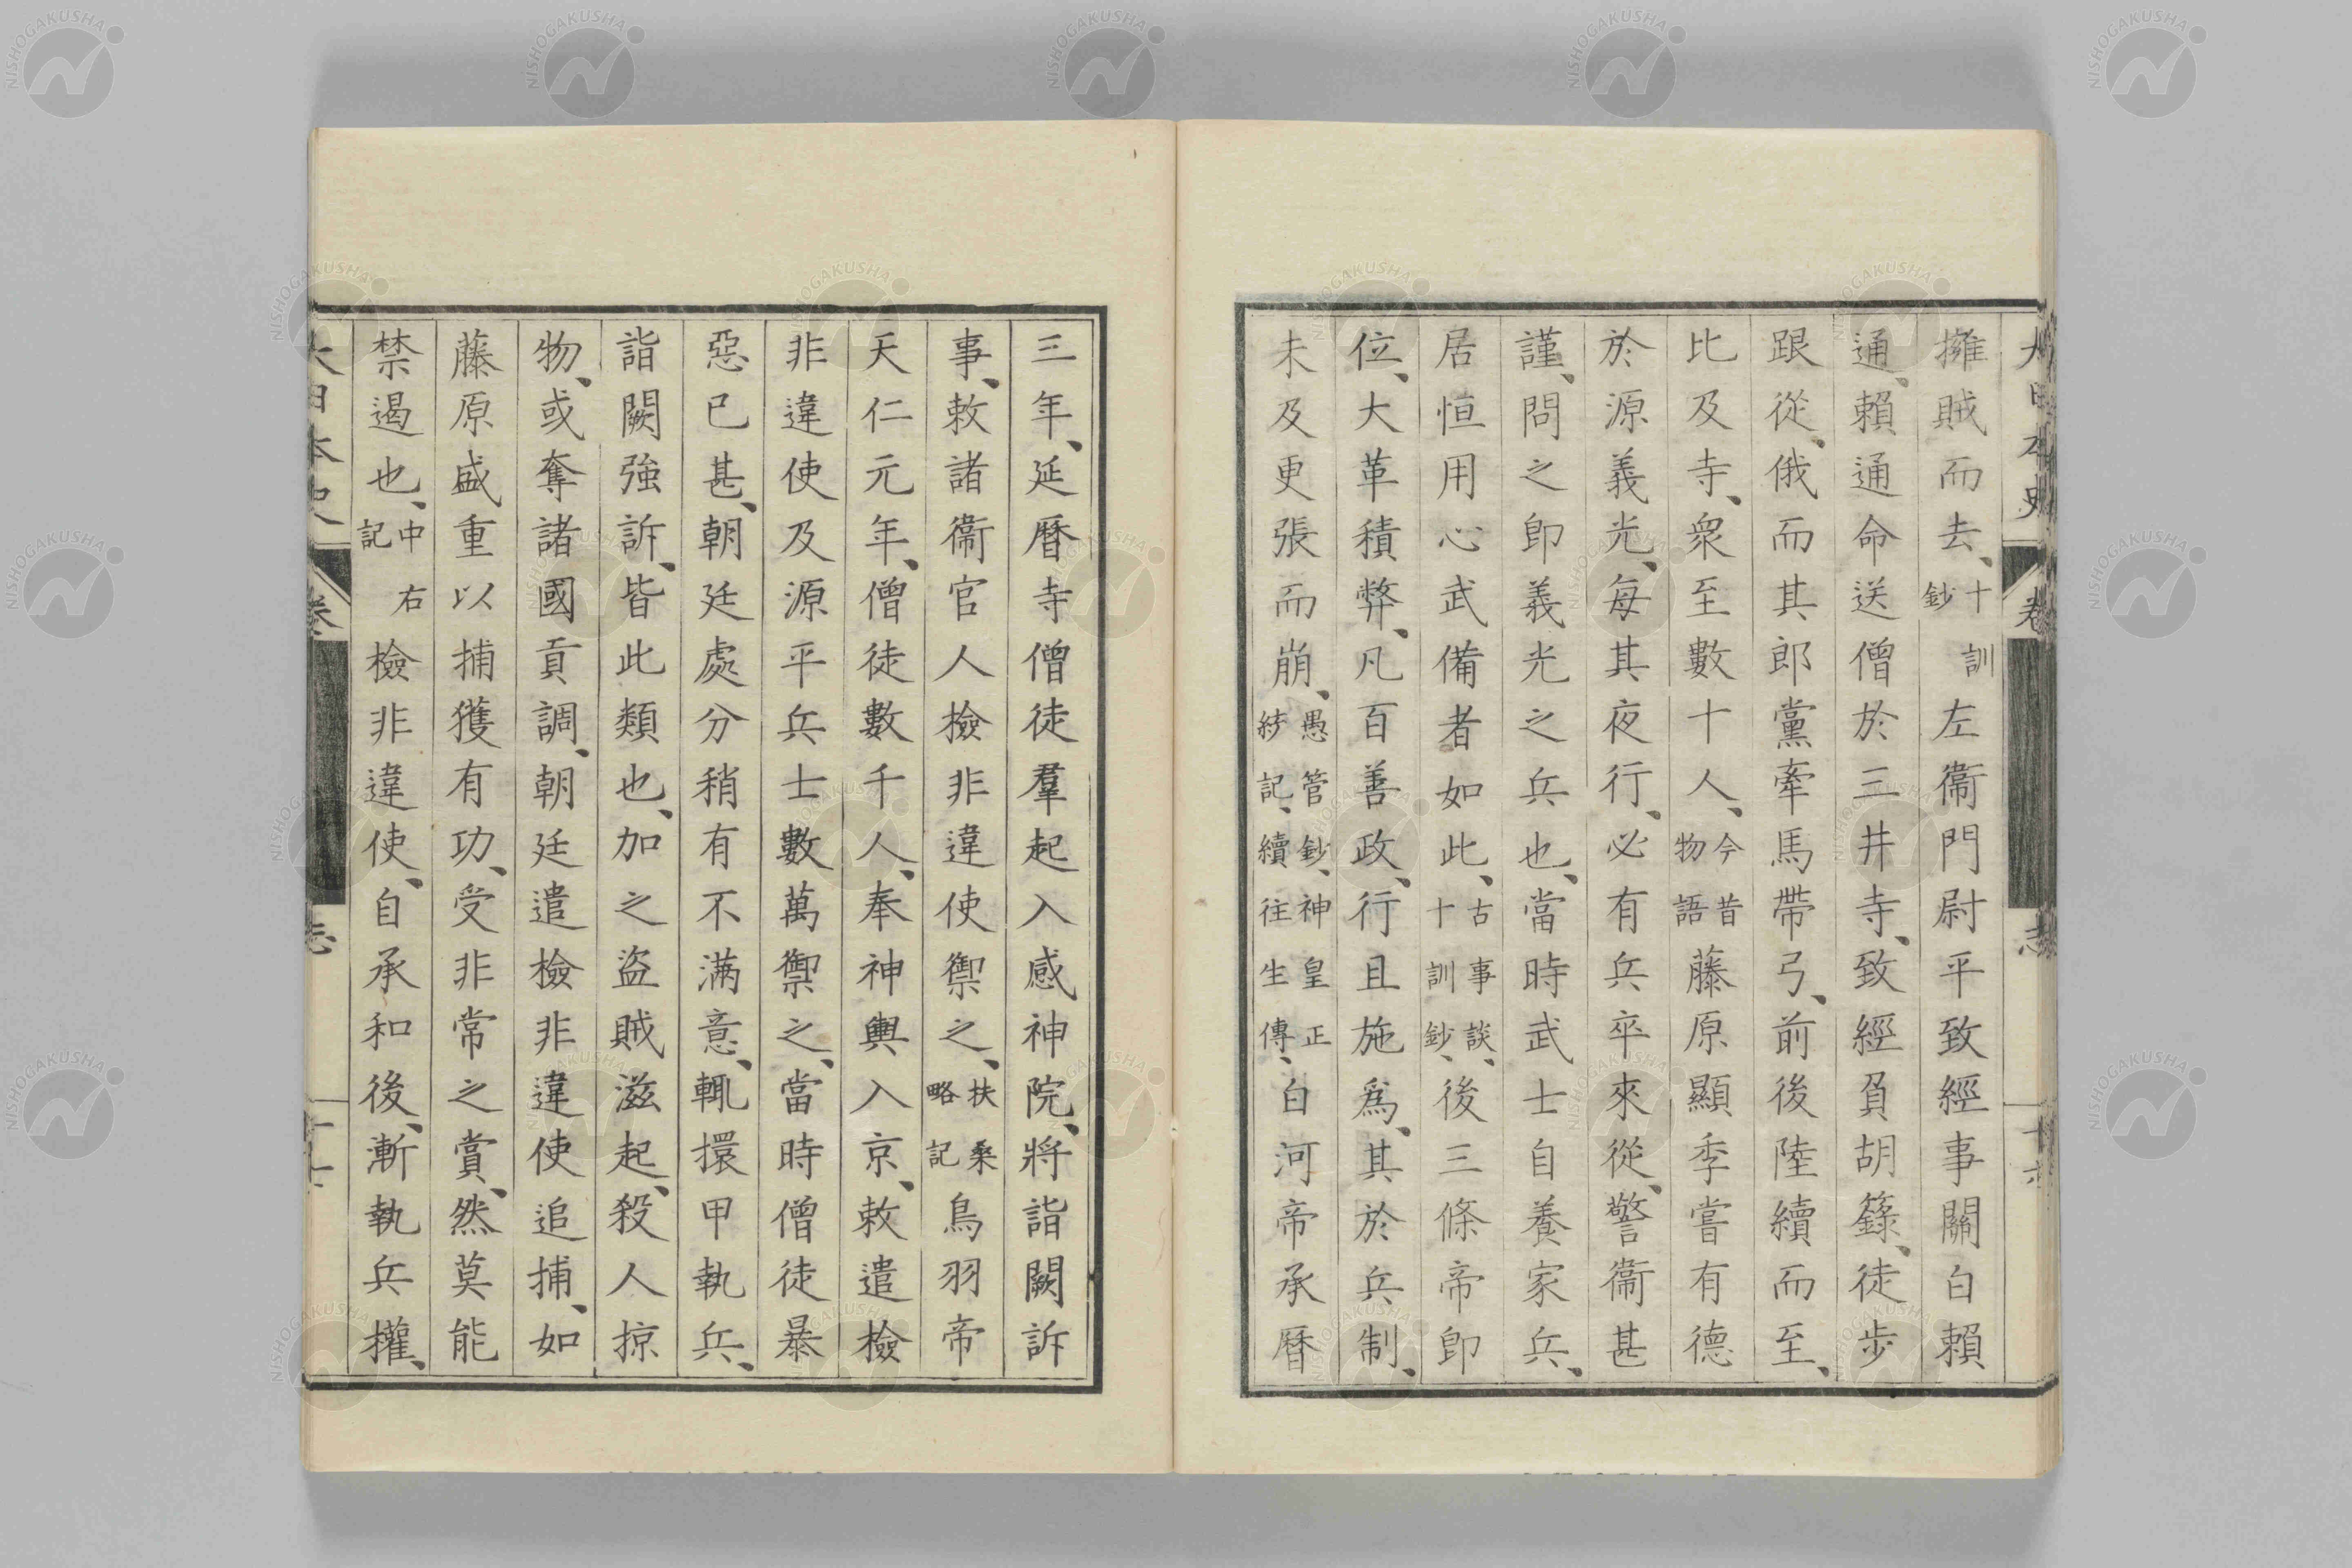 大日本史 卷 志 十六
擁賊而去、十訓鈔左衞門尉平致經事關白賴
通、賴通命送僧於三井寺、致經負胡籙、徒步
跟從、俄而其郎黨牽馬帶弓、前後陸續而至、
比及寺、衆至數十人、今昔物語藤原顯季嘗有德
於源義光、每其夜行、必有兵卒來從、警衞甚
謹、問之卽義光之兵也、當時武士自養家兵、
居恒用心武備者如此、古事談、十訓鈔、後三條帝卽
位、大革積弊、凡百善政、行且施爲、其於兵制、
未及更張而崩、愚管鈔、神皇正統記、續往生傳、白河帝承曆
三年、延曆寺僧徒羣起入感神院、將詣闕訴
事、敕諸衞官人檢非違使禦之、扶桑略記鳥羽帝
天仁元年、僧徒數千人、奉神輿入京、敕遣檢
非違使及源平兵士數萬禦之、當時僧徒暴
惡已甚、朝廷處分稍有不滿意、輒擐甲執兵、
詣闕強訴、皆此類也、加之盜賊滋起、殺人掠
物、或奪諸國貢調、朝廷遣檢非違使追捕、如
藤原盛重以捕獲有功、受非常之賞、然莫能
禁遏也、中右記檢非違使、自承和後、漸執兵權、
大日本史 卷 志 十七
NISHOGAKUSHA